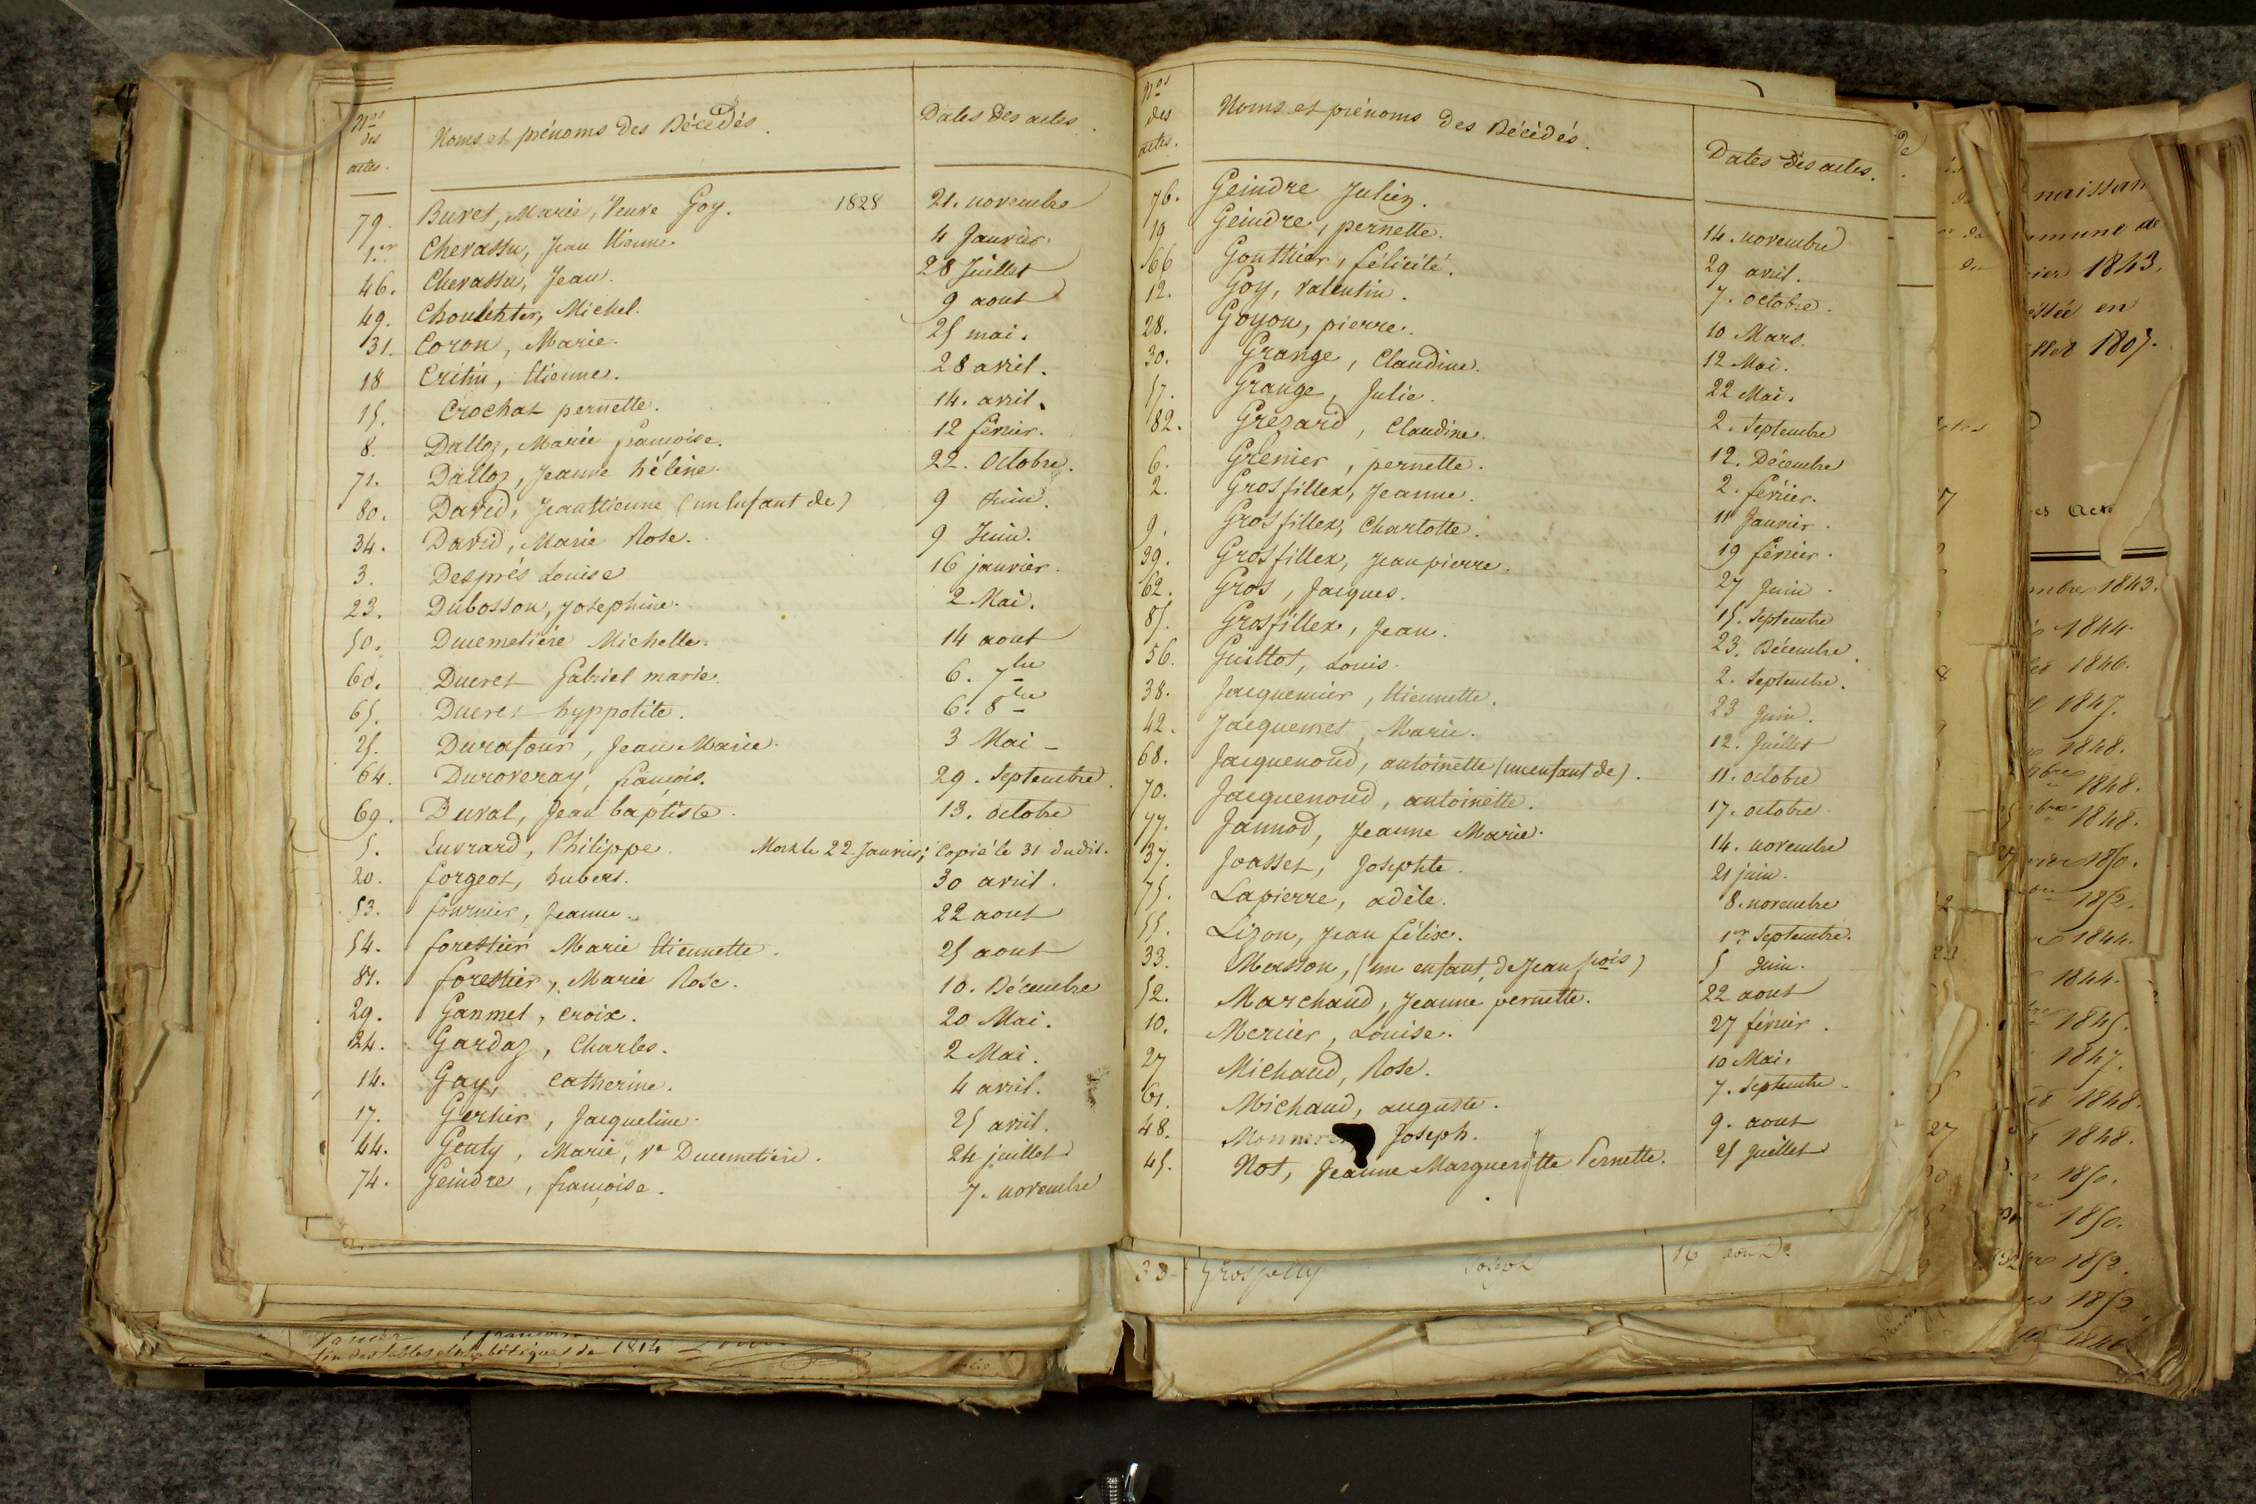 Nos des actes.
Noms et prénoms des Décédés.
Dates des actes.
79. Buret, Marie, Veuve Goy. 1828 21. novembre
1er Chevassu, Jean Etienne 4 Janvier.
46. Chevassu, Jean. 28 Juillet
49. Choulehter, Michel. 9 aout
31. Coron, Marie. 25 mai.
18 Critin, Etienne. 28 avril.
15. Crochat pernette. 14. avril.
8. Dalloz, Marie françoise. 12 février.
71. Dalloz, Jeanne hélène. 22. Octobre.
80. David, Jean Etienne (un Enfant de) 9 Juin.
34. David, Marie Rose. 9 Juin.
3. Desprès Louise 16 janvier.
23. Dubosson, Josephine. 2 Mai.
50. Ducmetière Michelle. 14 aout
60. Ducret Gabriel marie. 6. 7bre
65. Ducret hyppolite. 6. 8bre
25. Durafour, Jean Marie. 3 Mai
64. Duroveray, françois. 29. Septembre.
69. Duval, Jean baptiste. 13. octobre
5. Euvrard, Philippe. Mort le 22 Janvier; Copié le 31 dudit.
20. forgeot, hubert. 30 avril.
53. fournier, Jeanne. 22 aout
54. forestier Marie Etiennette. 25 aout
81. forestier, Marie Rose. 10. Décembre
29. Ganmet, croix. 20 Mai.
24. Gardaz, Charles. 2 Mai.
14. Gay, Catherine. 4 avril.
17. Gerlier, Jacqueline. 25 avril.
44. Genty, Marie, ve Ducmetière. 24 juillet
74. Geindre, françoise. 7. novembre
Nos des actes.
Noms et prénoms des Décédés.
Dates des actes.
76. Geindre Julien. 14. novembre
19 Geindre, pernette. 29 avril.
66 Gouthier, félicité. 7. octobre.
12. Goy, valentin. 10 Mars.
28. Goyon, pierre. 12 Mai.
30. Grange, Claudine. 22 Mai.
57. Grange, Julie. 2. Septembre
82. Gresard, Claudine. 12. Décembre
6. Grenier, pernette. 2. février.
2. Grosfillex, Jeanne. 11 Janvier.
9. Grosfillex, Charlotte. 19 février.
39. Grosfillex, Jean pierre. 27 Juin.
62. Gros, Jacques. 15. Septembre
85. Grosfillex, Jean. 23. Décembre.
56. Guillot, Louis. 2. Septembre.
38. Jacquemier, Etiennette. 23 Juin.
42. Jacquemet, Marie. 12. Juillet
68. Jacquenoud, antoinette (un enfant de). 11. octobre
70. Jacquenoud, antoinette. 17. octobre
77. Jannod, Jeanne Marie. 14. novembre
37. Joasset, Josephte. 21 juin.
75. Lapierre, adèle. 8. novembre
55. Lizon, Jean félix. 1er Septembre.
33. Masson, (un enfant de Jean fçois) 5 Juin.
52. Marchand, Jeanne pernette. 22 aout
10. Mercier, Louise. 27 février.
27 Michaud, Rose. 10 Mai.
61. Michaud, auguste. 7. Septembre.
48. Joseph. 9. aout
45. Not, Jeanne Margueritte Pernette. 25 Juillet
33 Joseph 16
fin des tables alphabétiques de 1814
naissan
1843.
en
1807.
mbre 1843.
1844.
1846.
1847.
1848.
1848.
1848.
1850.
1852.
1844.
1844.
1845.
1847.
1848.
1848.
1850.
1850.
1852.
1852
1846